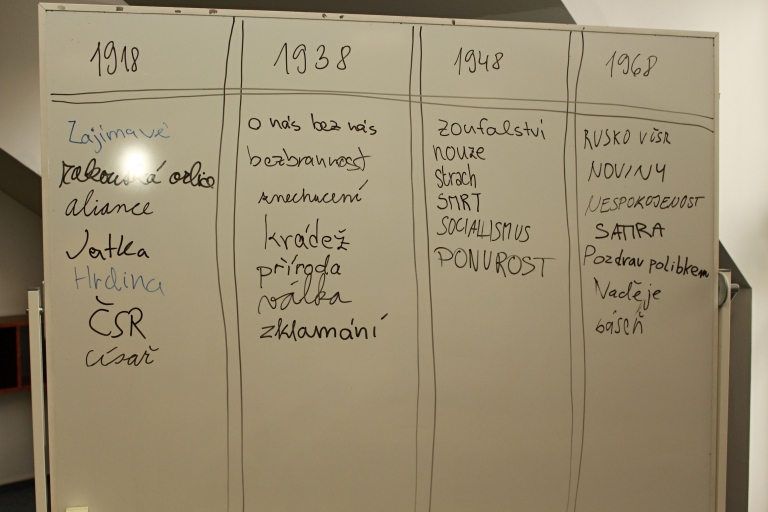 1918
Zajímavé
rakouská orlice
aliance
Jatka
Hrdina
ČSR
císař
1938
o nás bez nás
bezbrannost
znechucení
krádež
příroda
válka
zklamání
1948
zoufalství
nouze
strach
SMRT
SOCIALISMUS
PONUROST
1968
RUSKO VŠSR
NOVINY
NESPOKOJENOST
Pozdrav polibkem
Naděje
báseň